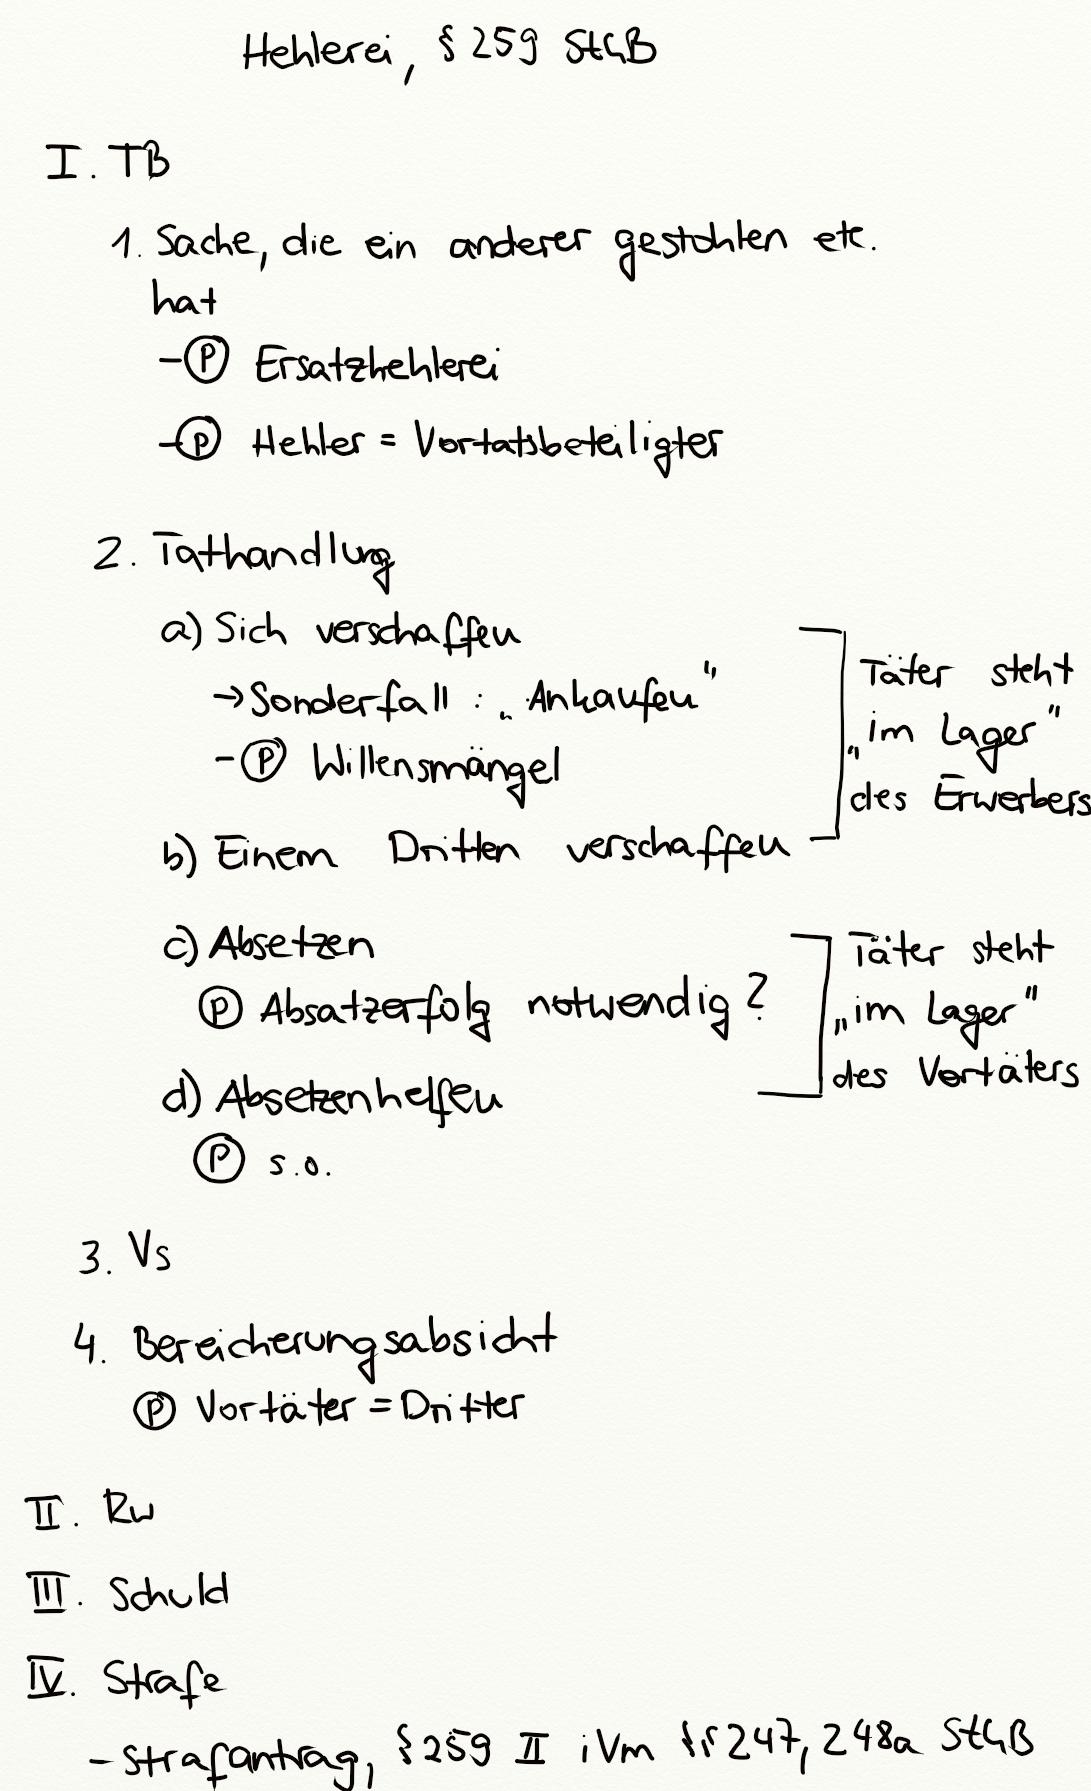 Hehlerei, § 259 StGB
I. TB
1. Sache, die ein anderer gestohlen etc.
hat
- Ⓟ Ersatzhehlerei
- Ⓟ Hehler = Vortatsbeteiligter
2. Tathandlung
a) Sich verschaffen
→ Sonderfall : „Ankaufen"
- Ⓟ Willensmängel
b) Einem Dritten verschaffen
Täter steht
„im Lager"
des Erwerbers
c) Absetzen
Ⓟ Absatzerfolg notwendig?
d) Absetzenhelfen
Ⓟ s.o.
Täter steht
„im Lager"
des Vortäters
3. Vs
4. Bereicherungsabsicht
Ⓟ Vortäter = Dritter
II. Rw
III. Schuld
IV. Strafe
- Strafantrag, § 259 II iVm §§ 247, 248a StGB